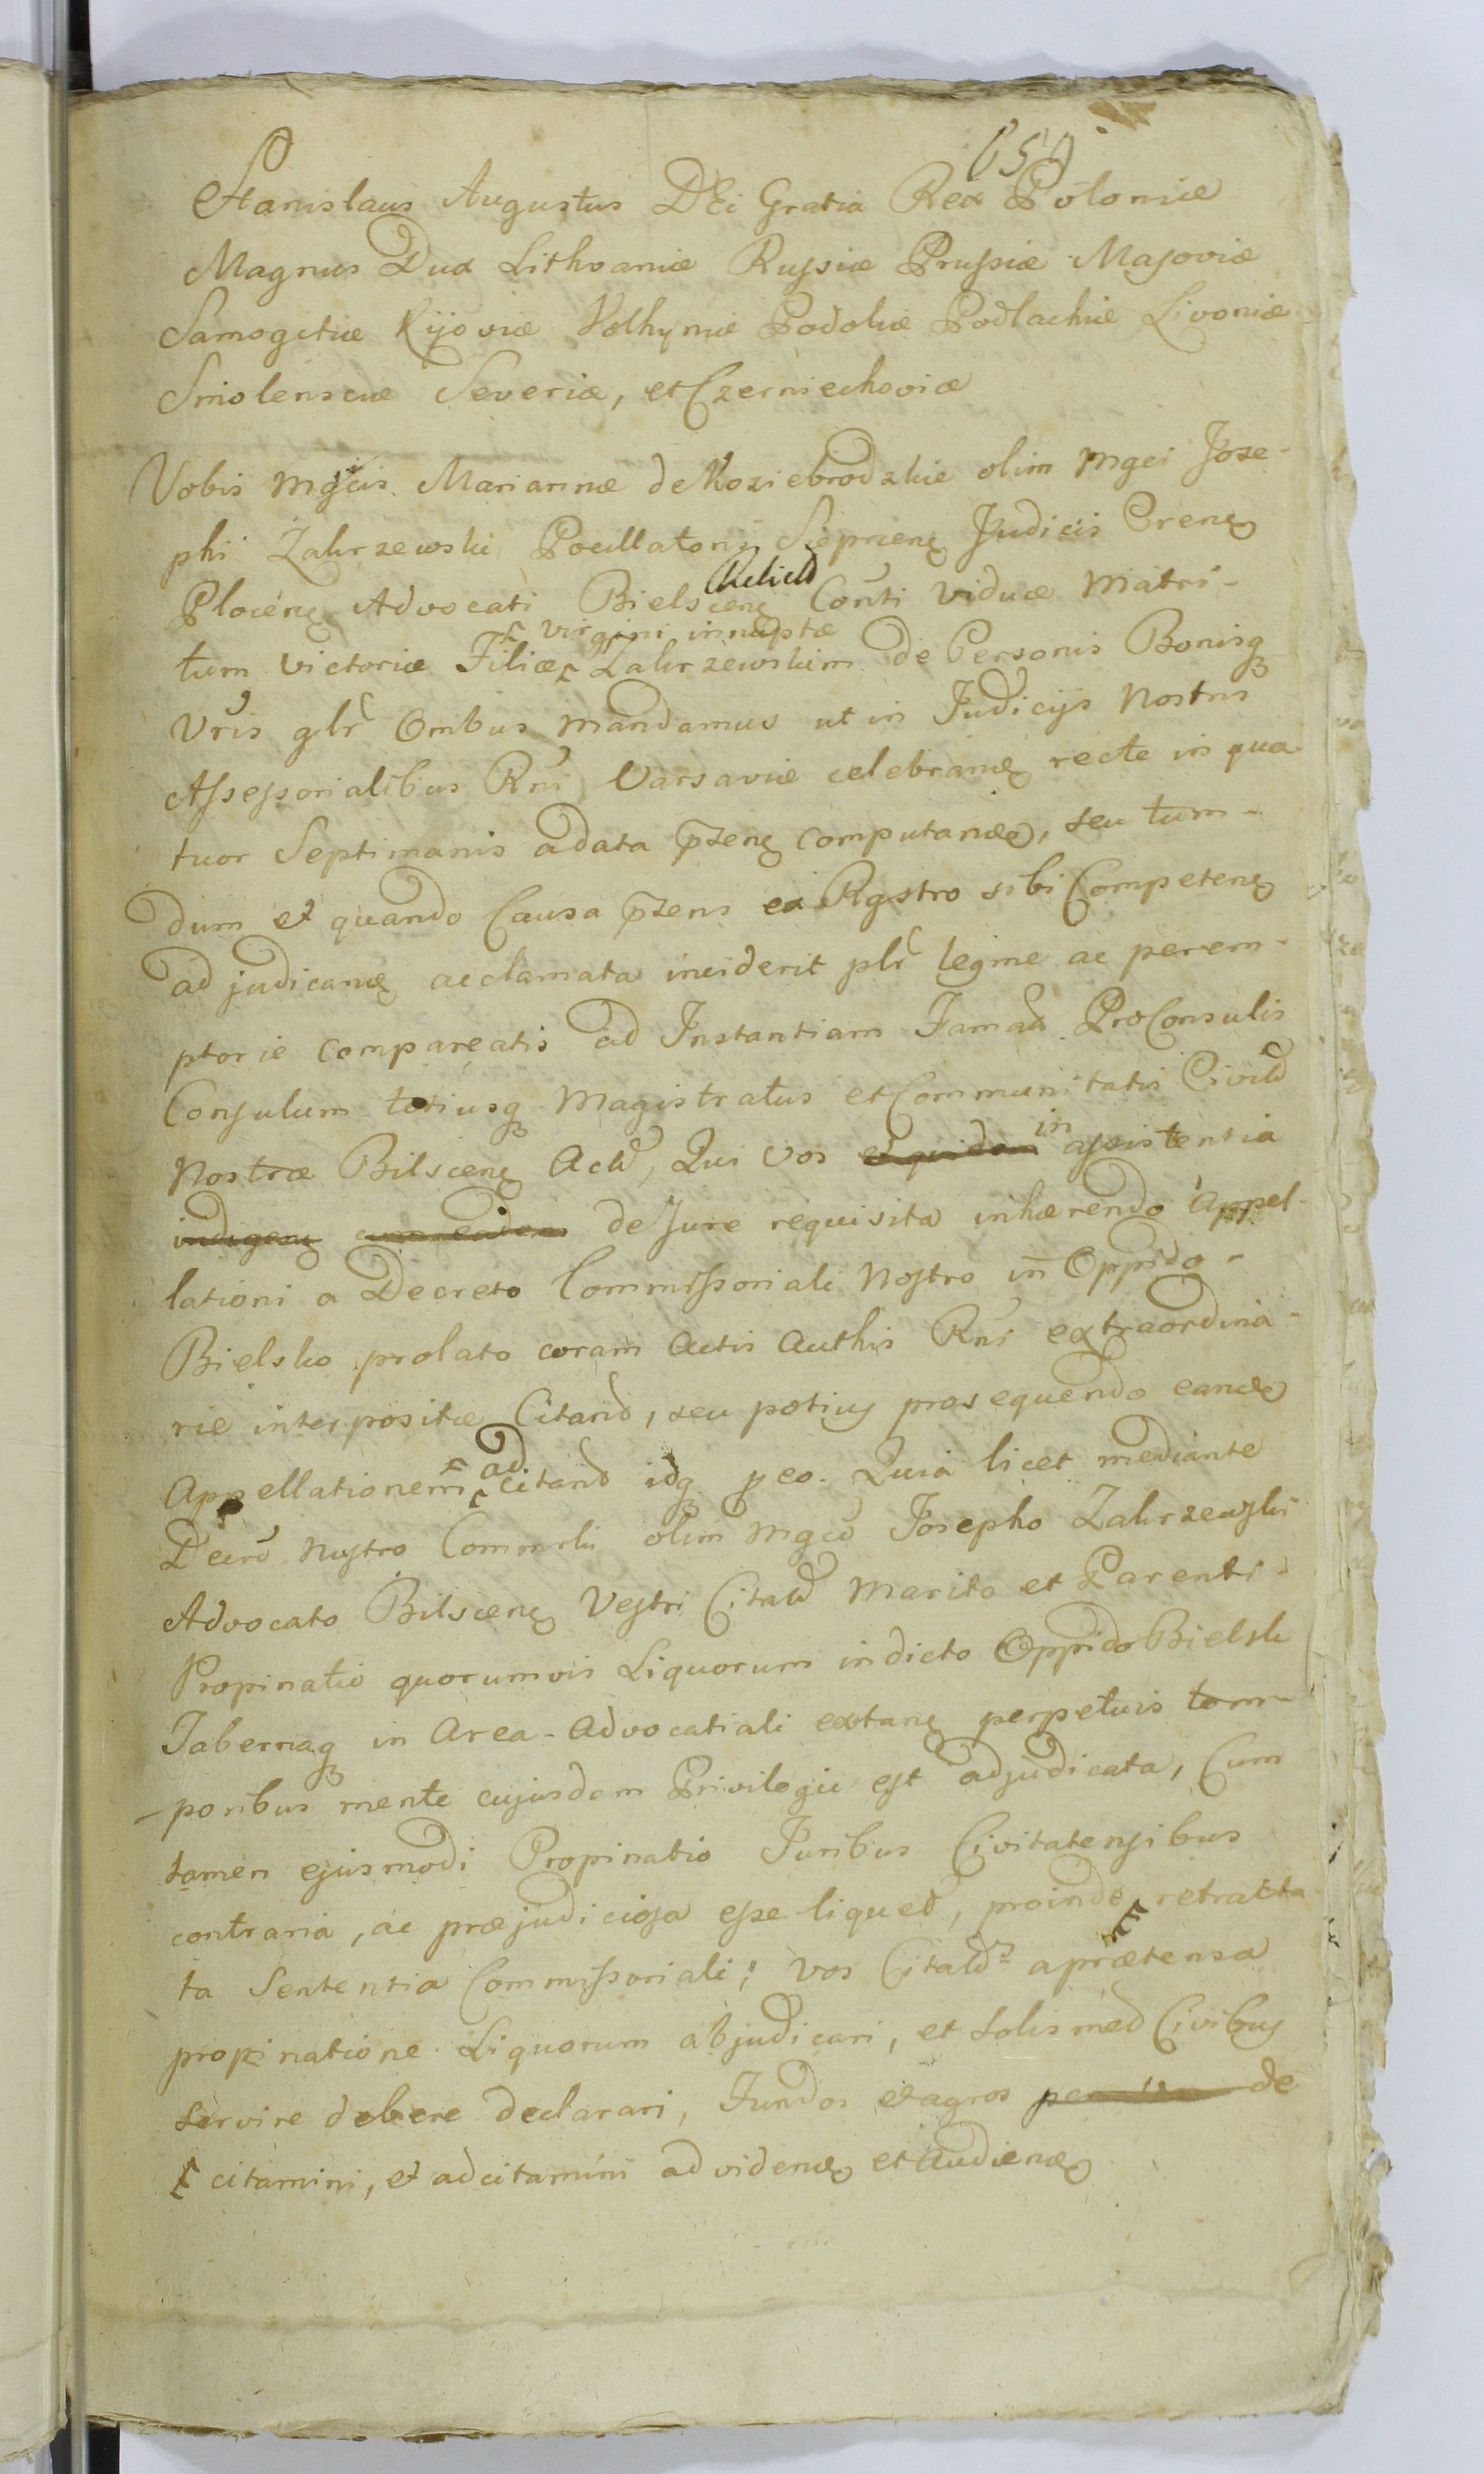 659
Stanislaus Augustus DEi Gratia Rex Poloniæ
Magnus Dux Lithvaniæ Russiæ Prussiæ Masoviæ
Samogitiæ Kijoviæ Volhyniæ Podoliæ Podlachiæ Livoniæ
Smolensciæ Severiæ, et Czerniechoviæ
Vobis Mgcis Mariannæ de Koziebrodzkie olim Mgci Jose-
phi Zakrzewski Pocillatoris Sieprcen Judicis Cren
Plocen Advocati Bielscen Relictæ Conti viduæ Matri-
virgini innuptæ
tum Victoriæ Filiæ Zakrzewskim de Personis Bonisq
Vris glr Ombus mandamus ut in Judicijs Nostris
Assessorialibus Rni Varsaviæ celebran recte in qua-
tuor Septimanis a data pzen computan, seu tum-
dum et quando Causa pzens ex Rgstro sibi Competen
ad judican acclamata inciderit plr legme ac perem-
ptorie compareatis ad Instantiam Famat ProConsulis
Consulum totiusq Magistratus et Communitatis Civit
Nostræ Bilscen Act, Qui vos et quidem in assistentia
indigen cum eadem de Jure requisita inhærendo Appel-
lationi a Decreto Commissoriali Nostro in Oppido-
Bielsko prolato coram Actis Authis Rni extraordina-
rie interpositæ Citand, seu potius prosequendo eand
Appellationem ad citand idq peo. Quia licet mediante
Decro Nostro Commrli olim Mgco Josepho Zakrzewski
Advocato Bilscen Vestri Citat Marito et Parenti-
Propinatio quorumvis Liquorum in dicto Oppido Bielsk
Tabernaq in Area-Advocatiali extan perpetuis tem-
-poribus mente cujusdam Privilegii est adjudicata, Cum
tamen ejusmodi Propinatio Juribus Civitatensibus
contraria, ac præjudiciosa esse liquet, proinde retracta
ta Sententia Commissoriali; vos Citat a prætensa
propinatione Liquorum abjudicari, et solis med Civibus
servire debere declarari, Fundos et agros de
citamini, et adcitamini ad viden et audien